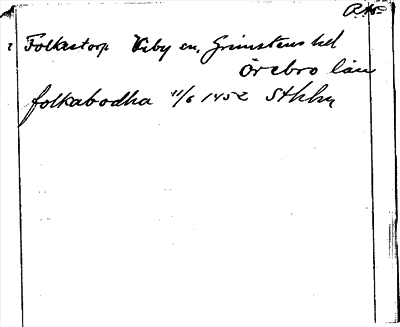 Folkestorp Viby sn, Grimstens hd
Örebro län
folkabodha 11/6 1452 Sthlm